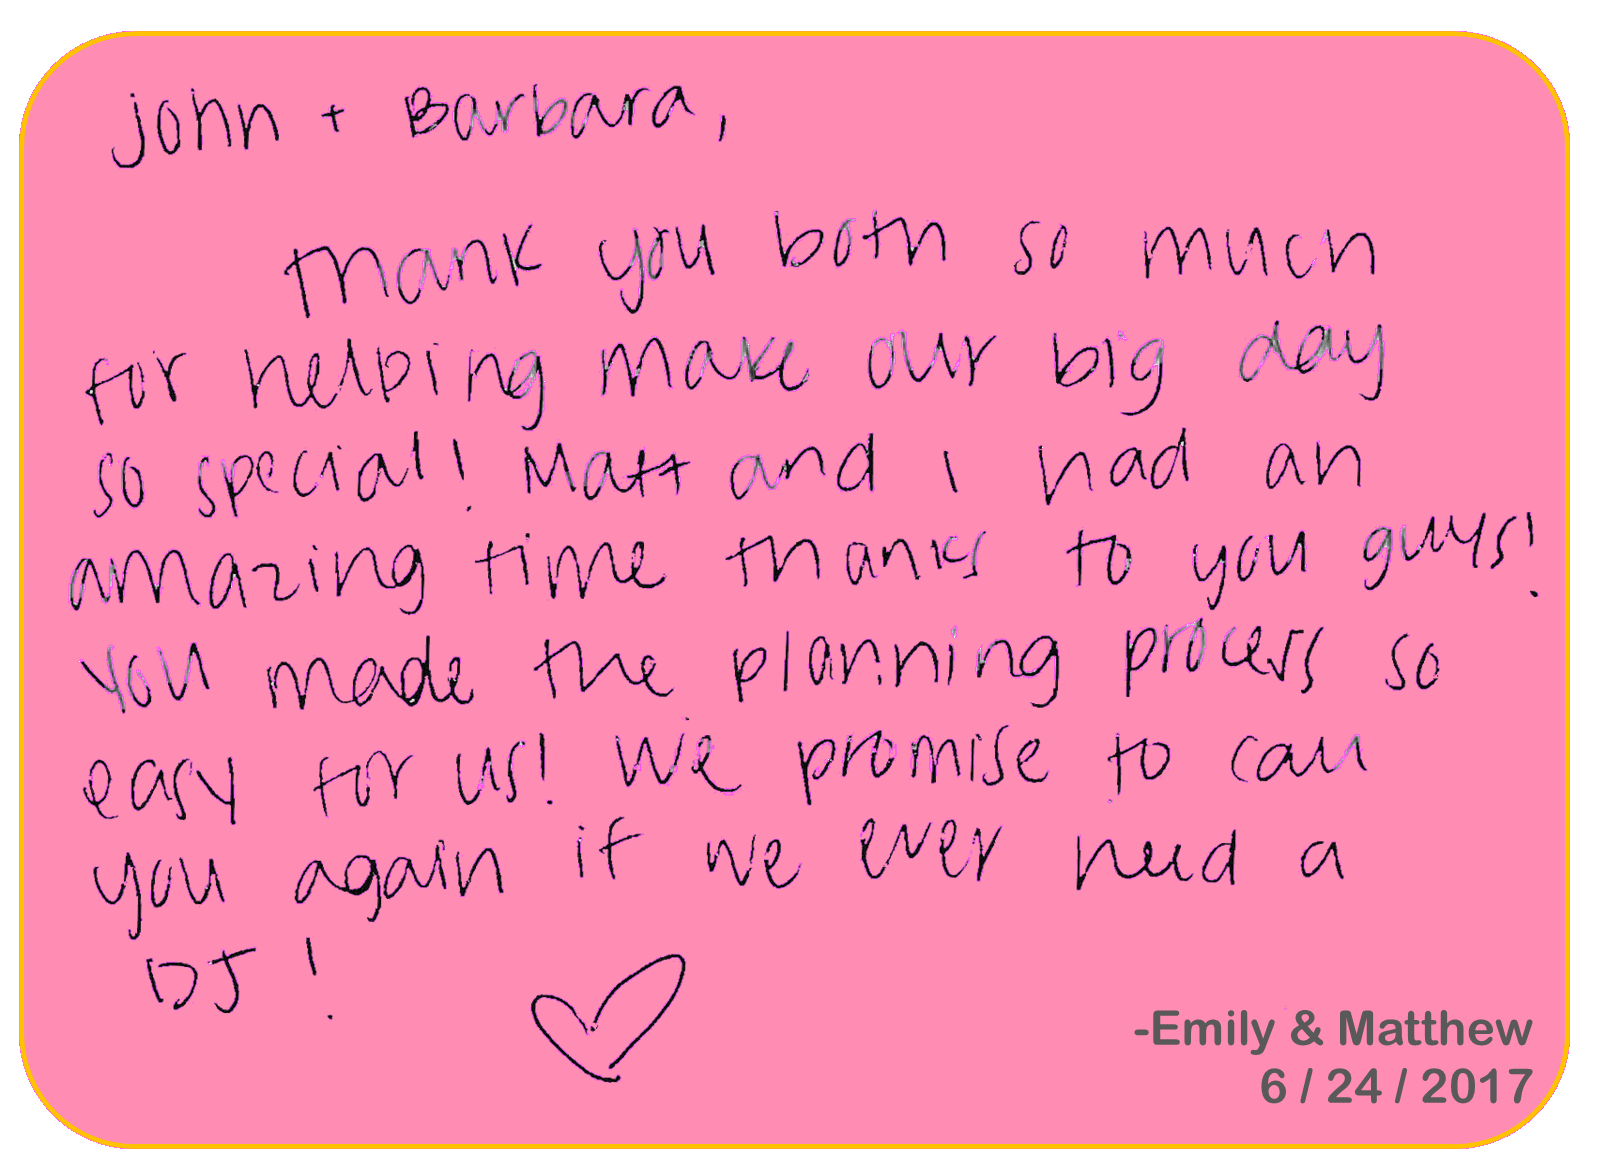 John + Barbara,
Thank you both so much
for helping make our big day
so special! Matt and I had an
amazing time thanks to you guys!
You made the planning process so
easy for us! We promise to call
you again if we ever need a
DJ!
-Emily & Matthew
6 / 24 / 2017